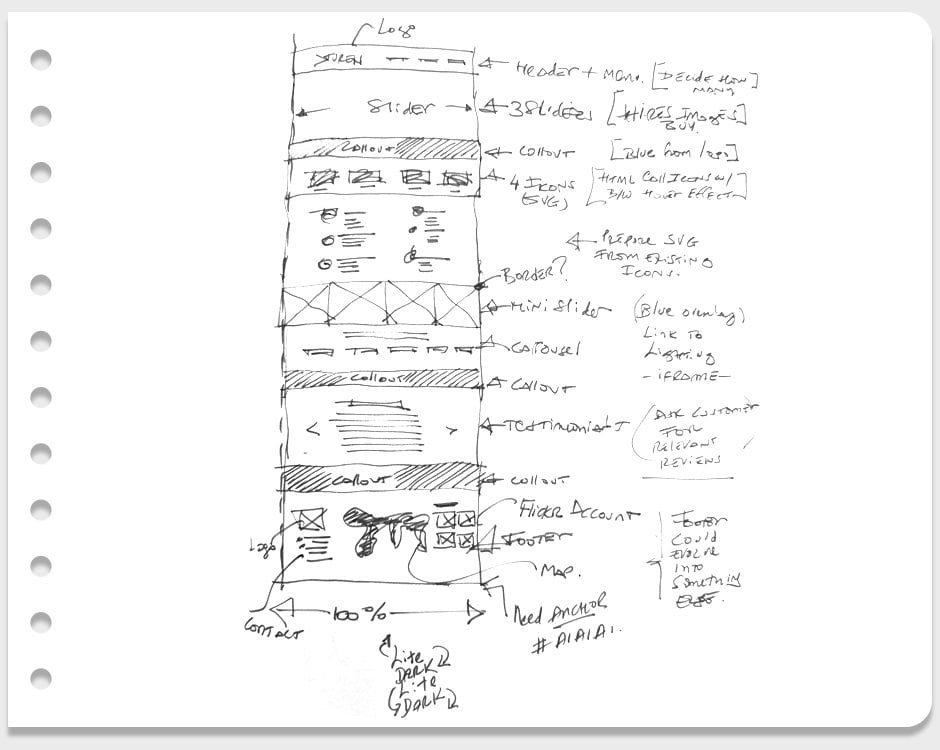 Logo
Header + Menu. [DECIDE HOW MANY]
Slider
3 Sliders [HIRES Images BUY]
CALLOUT
CALLOUT [Blue from logo]
4 ICONS (SVG)
HTML Call Icons w/ B/W Hover EFFECT
PREPARE SVG
FROM EXISTING
ICONS.
BORDER?
Mini Slider
(Blue overlay)
Link To
Lighting
- iFRAME -
CArrousel
CALLOUT
CALLOUT
TESTimonial
ASK CUSTOMER
FOR
RELEVANT
REVIEWS
CALLOUT
CALLOUT
Flicker Account
FOOTER
Logo
MAP.
FOOTER
Could
EVOLVE
INTO
Something
ELSE.
CONTACT
100%
Need ANCHOR
#A1A1A1.
Lite
DARK
Lite
DARK